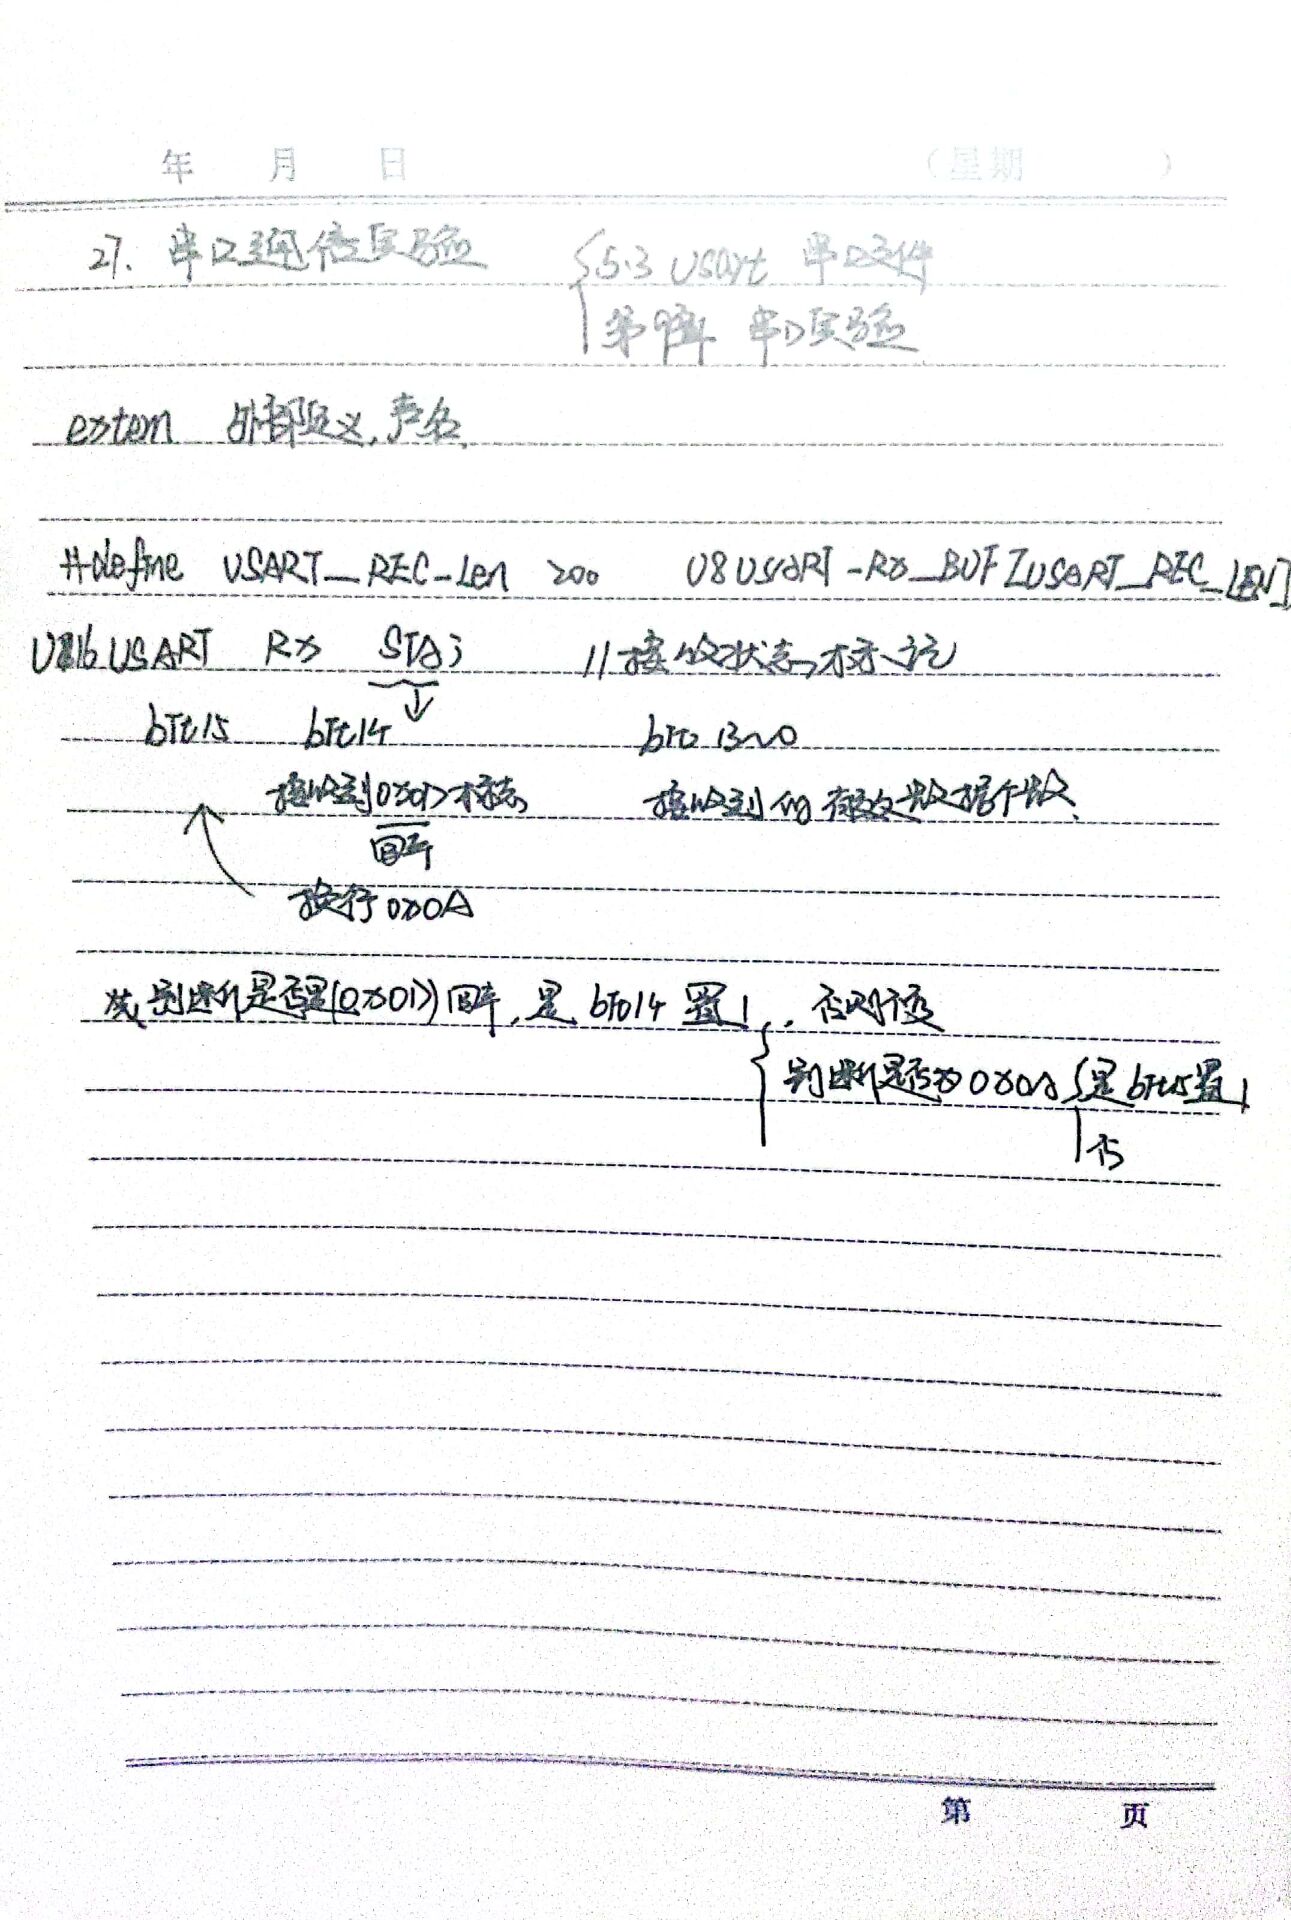 年 月 日 (星期 )
27. 串口通信实验 {5.3 usart 串口文件
第9章 串口实验
extern 外部定义,声名
#define USART_REC_Len 200 U8 USART_RX_BUF[USART_REC_LEN]
U16 USART RX STA; //接收状态标记
bit15 bit14 bit 13~0
接收到0x0D标志 接收到的有效数据个数
回车
换行0x0A
判断是否是(0x0D)回车,是 bit14 置1, 否则不变
{判断是否为0x0A {是 bit15置1
否
第 页